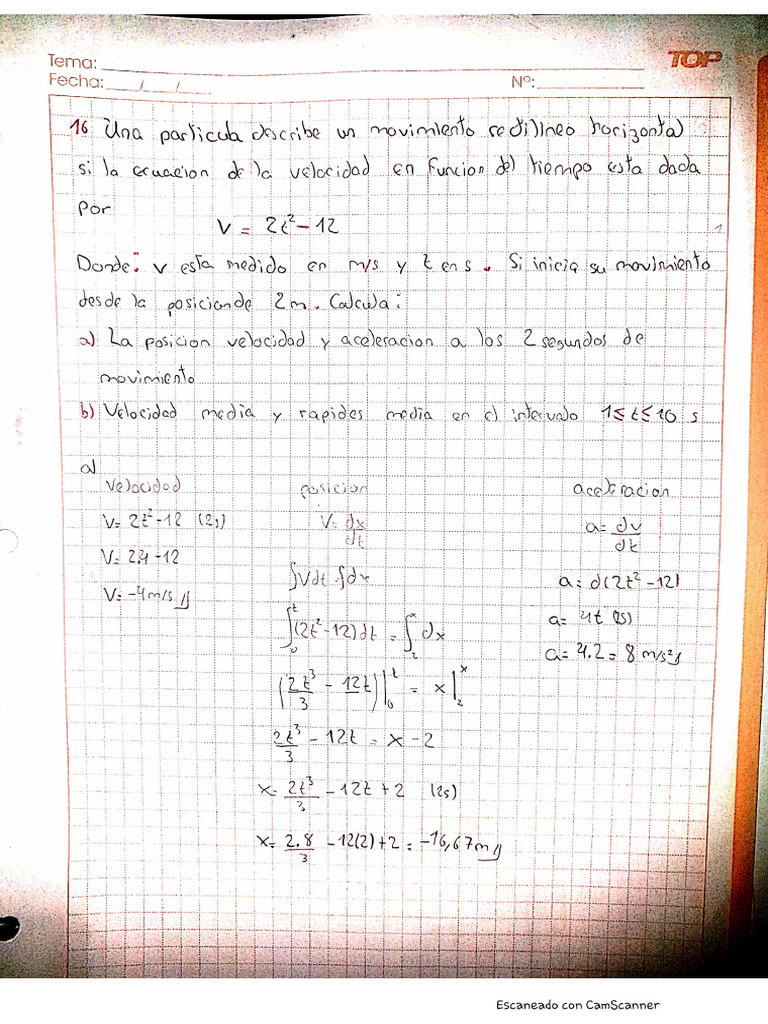 Tema:
TOP
Fecha: / /
Nº:
16 Una particula describe un movimiento rectilineo horizontal
si la ecuacion de la velocidad en funcion del tiempo esta dada
por
V = 2t² - 12
Donde: v esta medido en m/s y t en s. Si inicia su movimiento
desde la posicion de 2m. Calcula:
a) La posicion velocidad y aceleracion a los 2 segundos de
movimiento
b) Velocidad media y rapides media en el intervalo 1≤t≤10 s
a)
velocidad
V= 2t²-12 (2s)
V= 2.4-12
V= -4m/s
posicion
V= dx/dt
∫Vdt=∫dx
∫₀ᵗ(2t²-12)dt = ∫₂ˣ dx
(2t³/3 - 12t)|₀ᵗ = x|₂ˣ
2t³/3 - 12t = x - 2
x= 2t³/3 - 12t + 2 (2s)
x= 2.8/3 - 12(2)+2 = -16,67m
aceleracion
a= dv/dt
a= d(2t²-12)
a= 4t (2s)
a= 4.2 = 8 m/s²
Escaneado con CamScanner